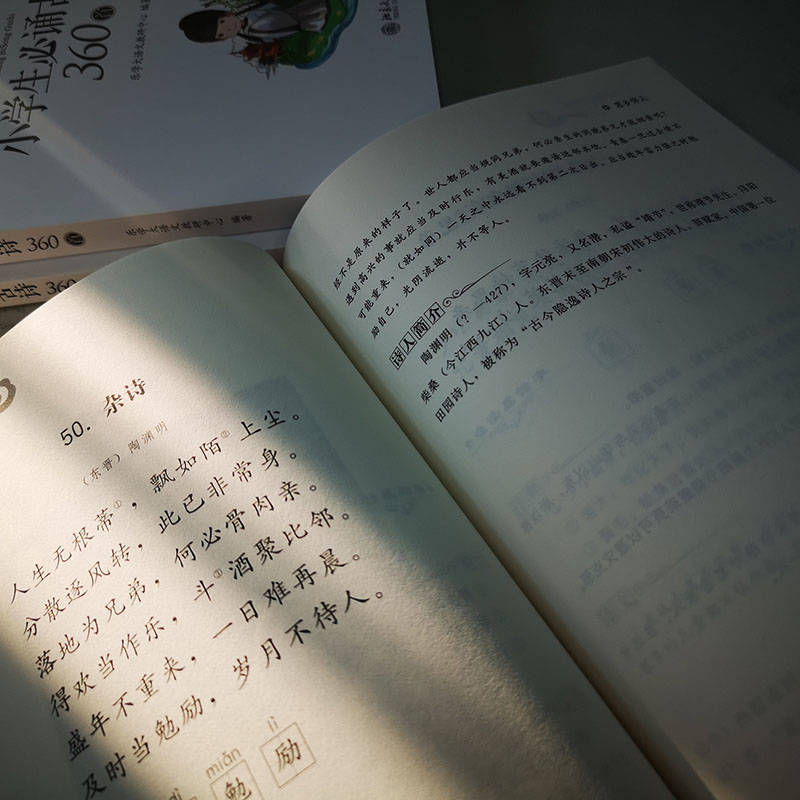 小学生必诵古
360首
乐学大语文教研中心 编著
诗 360首
乐学大语文教研中心 编著
古诗 360
50. 杂诗
（东晋）陶渊明
人生无根蒂①，飘如陌②上尘。
分散逐风转，此已非常身。
落地为兄弟，何必骨肉亲。
得欢当作乐，斗③酒聚比邻。
盛年不重来，一日难再晨。
及时当勉励，岁月不待人。
miǎn lì
勉 励
经不是原来的样子了。世人都应当视同兄弟，何必亲生的同胞弟兄才能相亲呢？
遇到高兴的事就应当及时行乐，有美酒就要邀请近邻共饮。青春一旦过去便不
可能重来，（就如同）一天之中永远看不到第二次日出。应当趁年富力强之时勉
励自己，光阴流逝，并不等人。
诗人简介
陶渊明（？—427），字元亮，又名潜，私谥“靖节”，世称靖节先生，浔阳
柴桑（今江西九江）人。东晋末至南朝宋初伟大的诗人、辞赋家。中国第一位
田园诗人，被称为“古今隐逸诗人之宗”。